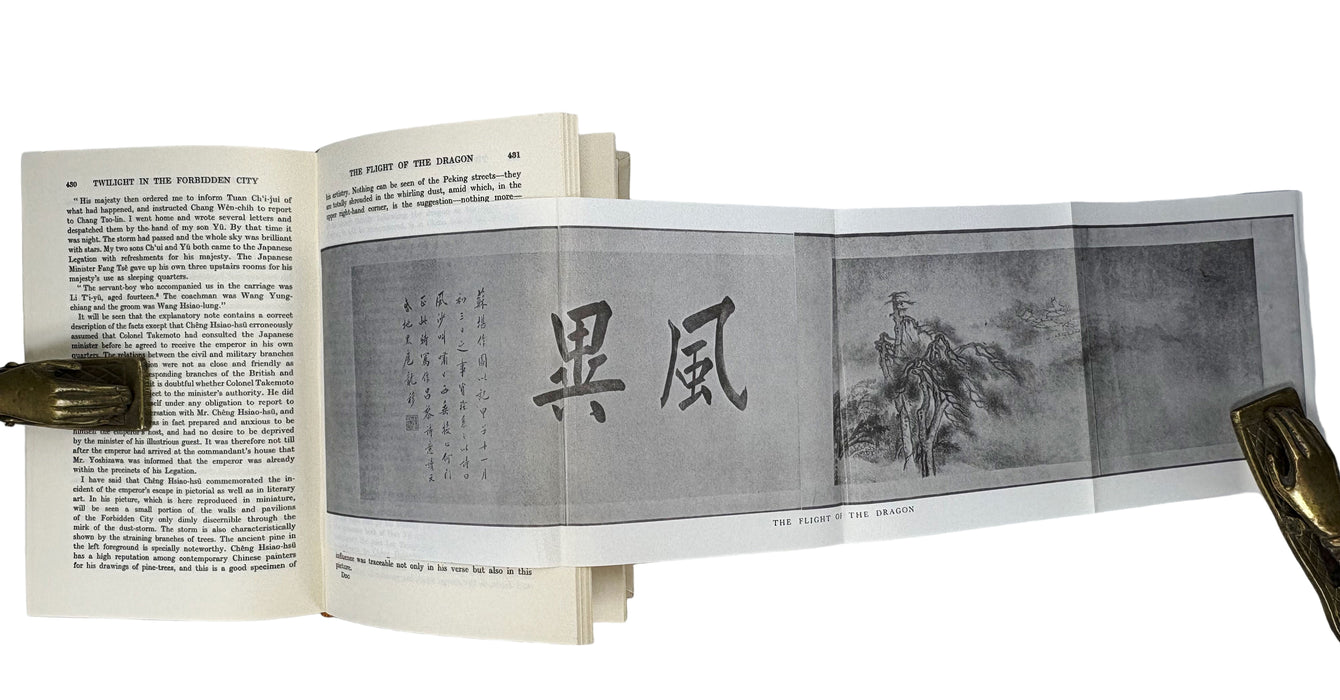 430 TWILIGHT IN THE FORBIDDEN CITY
"His majesty then ordered me to inform Tuan Ch'i-jui of
what had happened, and instructed Chang Wên-chih to report
to Chang Tso-lin. I went home and wrote several letters and
despatched them by the hand of my son Yü. By that time it
was night. The storm had passed and the whole sky was brilliant
with stars. My two sons Ch'ui and Yü both came to the Japanese
Legation with refreshments for his majesty. The Japanese
Minister Fang Tsê gave up his own three upstairs rooms for his
majesty's use as sleeping quarters.
"The servant-boy who accompanied us in the carriage was
Li T'i-yü, aged fourteen. The coachman was Wang Yung-
chiang and the groom was Wang Hsiao-lung."
It will be seen that the explanatory note contains a correct
description of the facts except that Chêng Hsiao-hsü erroneously
assumed that Colonel Takemoto had consulted the Japanese
minister before he agreed to receive the emperor in his own
quarters. The relations between the civil and military branches
tion were not as close and friendly as
sponding branches of the British and
it is doubtful whether Colonel Takemoto
ject to the minister's authority. He did
self under any obligation to report to
versation with Mr. Chêng Hsiao-hsü, and
as in fact prepared and anxious to be
himself the emperor's host, and had no desire to be deprived
by the minister of his illustrious guest. It was therefore not till
after the emperor had arrived at the commandant's house that
Mr. Yoshizawa was informed that the emperor was already
within the precincts of his Legation.
I have said that Chêng Hsiao-hsü commemorated the in-
cident of the emperor's escape in pictorial as well as in literary
art. In his picture, which is here reproduced in miniature,
will be seen a small portion of the walls and pavilions
of the Forbidden City only dimly discernible through the
mirk of the dust-storm. The storm is also characteristically
shown by the straining branches of trees. The ancient pine in
the left foreground is specially noteworthy. Chêng Hsiao-hsü
has a high reputation among contemporary Chinese painters
for his drawings of pine-trees, and this is a good specimen of
THE FLIGHT OF THE DRAGON 431
his artistry. Nothing can be seen of the Peking streets—they
are totally shrouded in the whirling dust, amid which, in the
upper right-hand corner, is the suggestion—nothing more—
風異
蘇堪作圖以記甲子十一月
初三日之事
THE FLIGHT OF THE DRAGON
influence was traceable not only in his verse but also in this
picture.
DDC